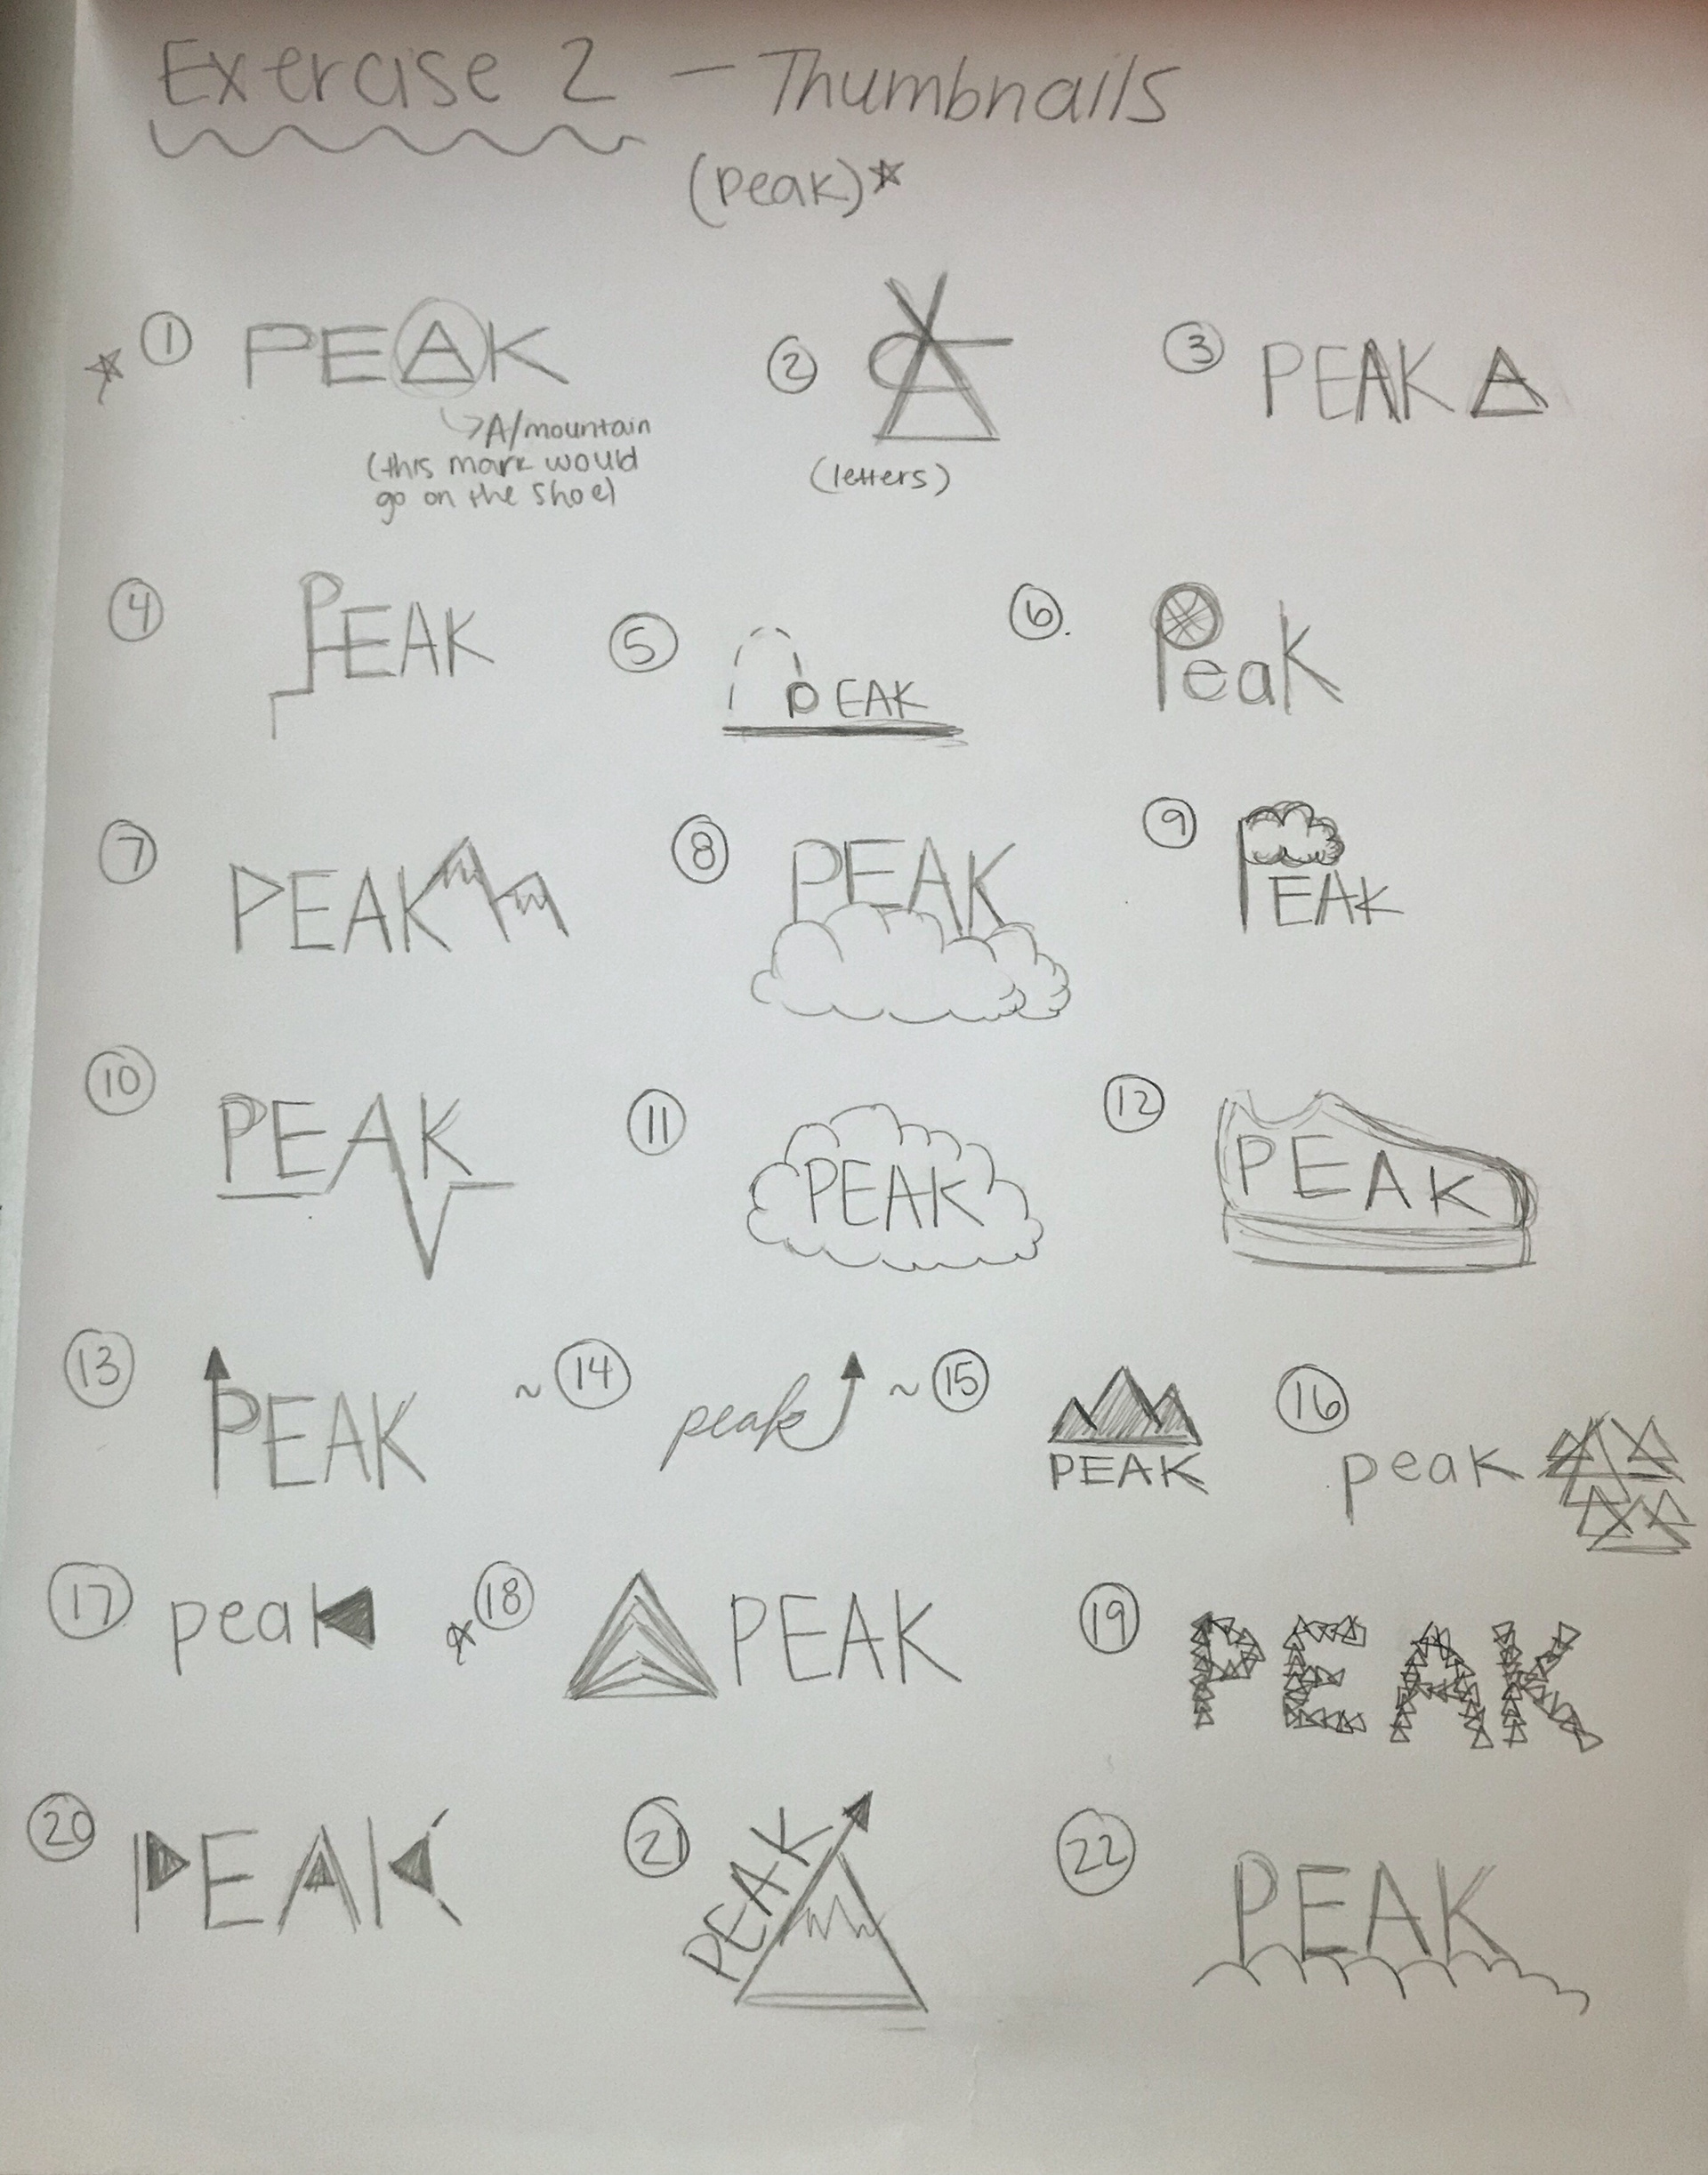 Exercise 2 — Thumbnails
(peak)*
① PEAK
→A/mountain
(this mark would
go on the shoe)
②
(letters)
③ PEAK
④ PEAK
⑤ PEAK
⑥. Peak
⑦ PEAK
⑧ PEAK
⑨ PEAK
⑩ PEAK
⑪ PEAK
⑫ PEAK
⑬ PEAK
~ ⑭ peak
~ ⑮ PEAK
⑯ peak
⑰ peak
⑱ PEAK
⑲ PEAK
⑳ PEAK
㉑ PEAK
㉒ PEAK